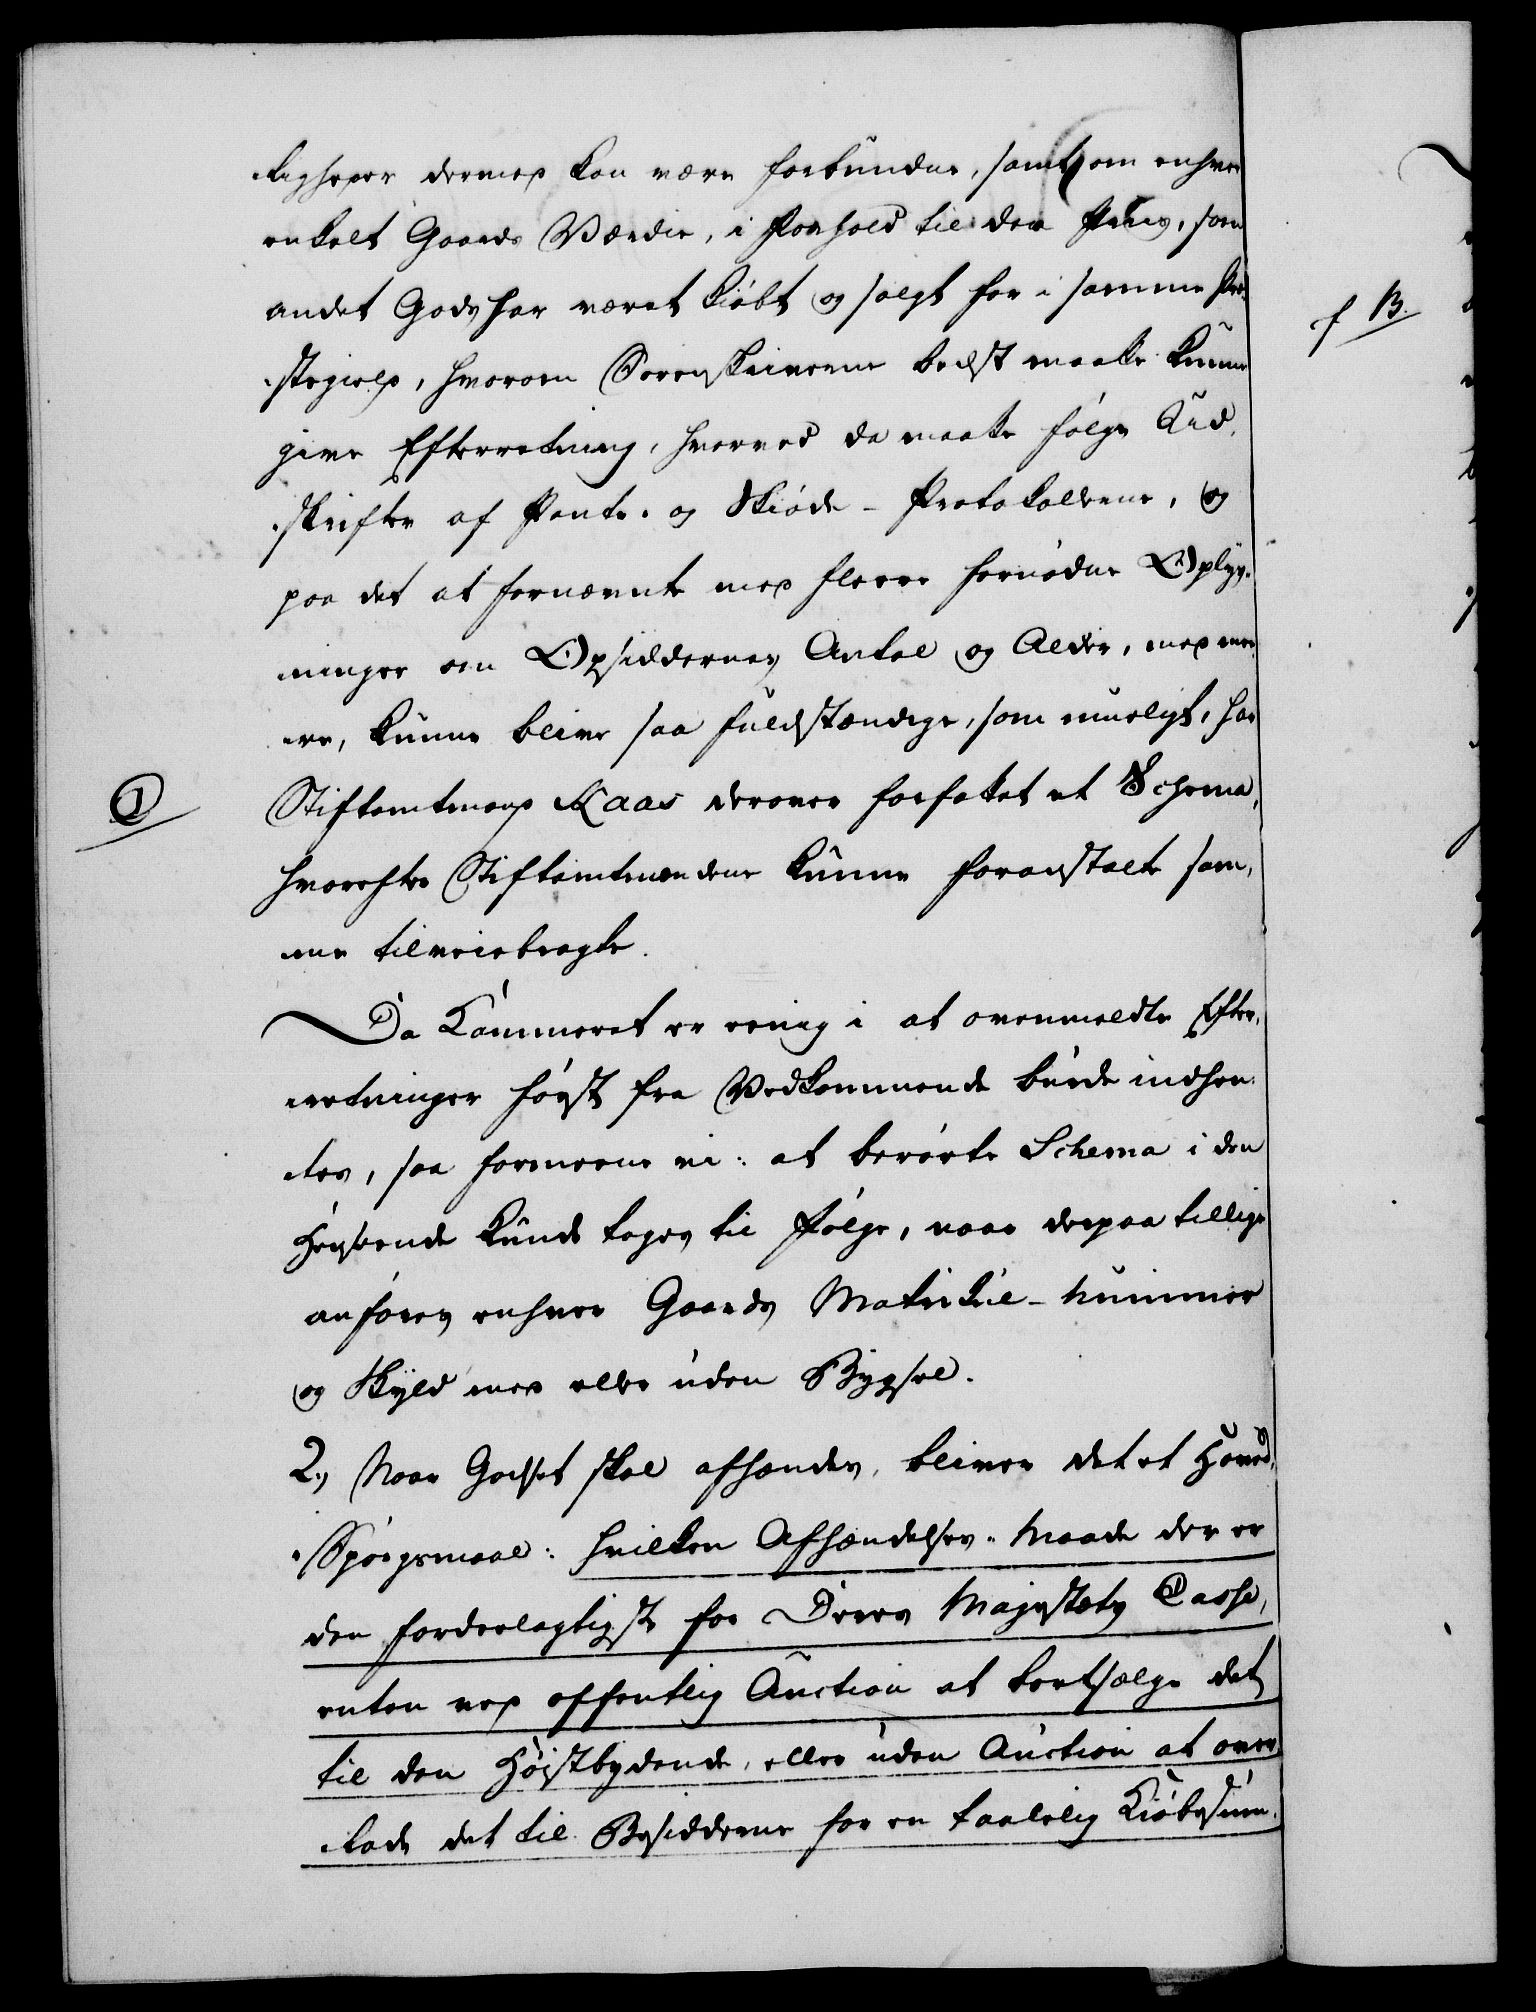 ligheder dermed kan være forbunden, samt om enhver
enkelt Gaards Værdie, i Forhold til den Priis, som
andet Gods har været kiøbt og solgt for i samme Præ-
stegield, hvorom Sorenskriverne bedst maatte kunne
give Efterretning, hvorved da maatte følge Ud-
skrifter af Pante- og Skiøde-Protokollerne, og
paa det at fornævnte med fleere fornødne Oplys-
ninger om Opsiddernes Antal og Alder, med me-
re, kunne blive saa fuldstændige, som mueligt, har
Stiftamtmand Kaas derover forfattet et Schema,
hvorefter Stiftamtmændene kunne foranstalte sam-
me tilveiebragte.
Da Kammeret er eenig i at ovenmeldte Efter-
retninger først fra Vedkommende burde indhen-
tes, saa formeene vi: at berørte Schema i den
Henseende kunde tages til Følge, naar derpaa tillige
anføres enhver Gaards Matrikul-Nummer
og Skyld med eller uden Bygsel.
2, Naar Godset skal afhændes, bliver det et Hoved-
Spørgsmaal: hvilken Afhændelses-Maade der er
den fordeelagtigste for Deres Majestæts Casse,
enten ved offentlig Auction at bortsælge det
til den Høistbydende, eller uden Auction at over-
lade det til Besidderne for en taalelig Kiøbesum.
1
f B.